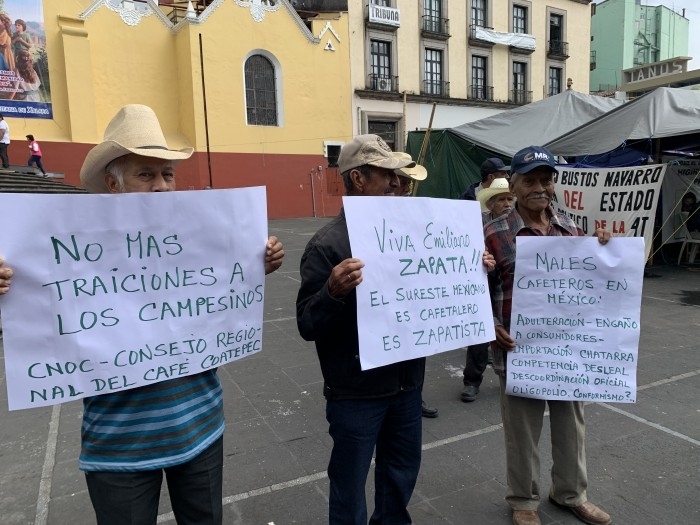 NO MAS
TRAICIONES A
LOS CAMPESINOS
CNOC-CONSEJO REGIO-
NAL DEL CAFÉ COATEPEC
VIVA EMILIANO
ZAPATA!!
EL SURESTE MEXICANO
ES CAFETALERO
ES ZAPATISTA
MALES
CAFETEROS EN
MÉXICO:
ADULTERACIÓN-ENGAÑO
A CONSUMIDORES-
IMPORTACIÓN CHATARRA
COMPETENCIA DESLEAL
DESCOORDINACIÓN OFICIAL
OLIGOPOLIO. CONFORMISMO?.
BUSTOS NAVARRO
DEL ESTADO
DE LA 4T
TRIBUNA